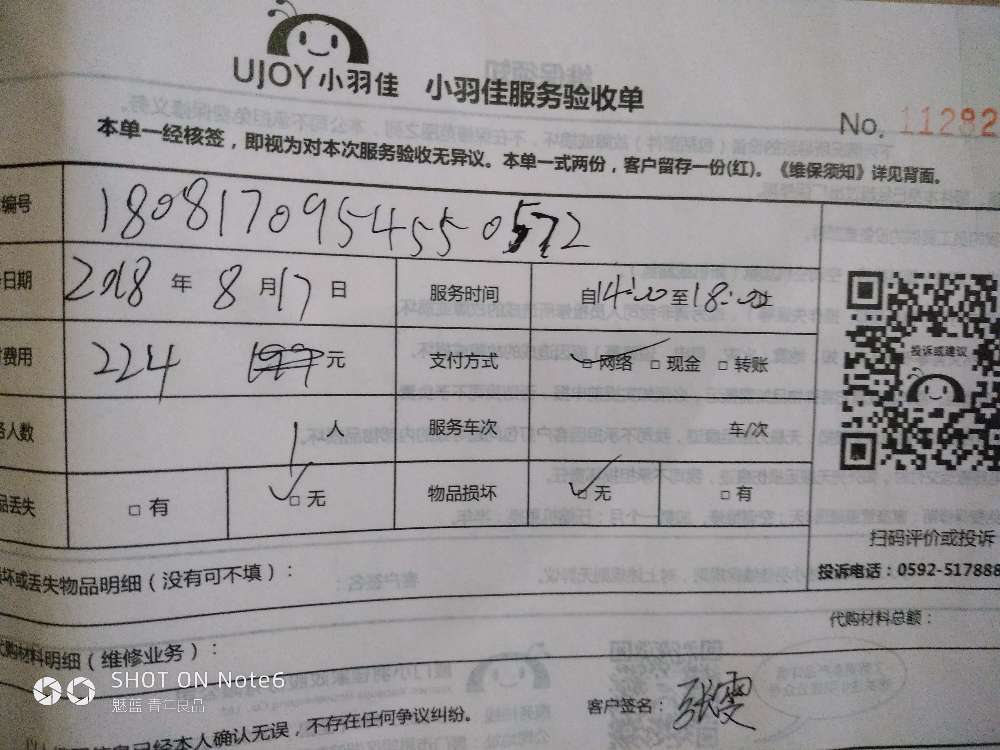 UJOY小羽佳 小羽佳服务验收单
No. 11282
本单一经核签，即视为对本次服务验收无异议。本单一式两份，客户留存一份(红)。《维保须知》详见背面。
编号 1808170954550572
日期 2018 年 8 月 17 日 服务时间 自14:00至18:00止
费用 224 元 支付方式 ☑网络 □现金 □转账
人数 1 人 服务车次 车/次
品丢失 □有 ☑无 物品损坏 ☑无 □有
投诉或建议
扫码评价或投诉
坏或丢失物品明细（没有可不填）：
投诉电话：0592-517888
代购材料总额：
代购材料明细（维修业务）：
客户签名：张雯
信息已经本人确认无误，不存在任何争议纠纷。
SHOT ON Note6
魅蓝 青年良品